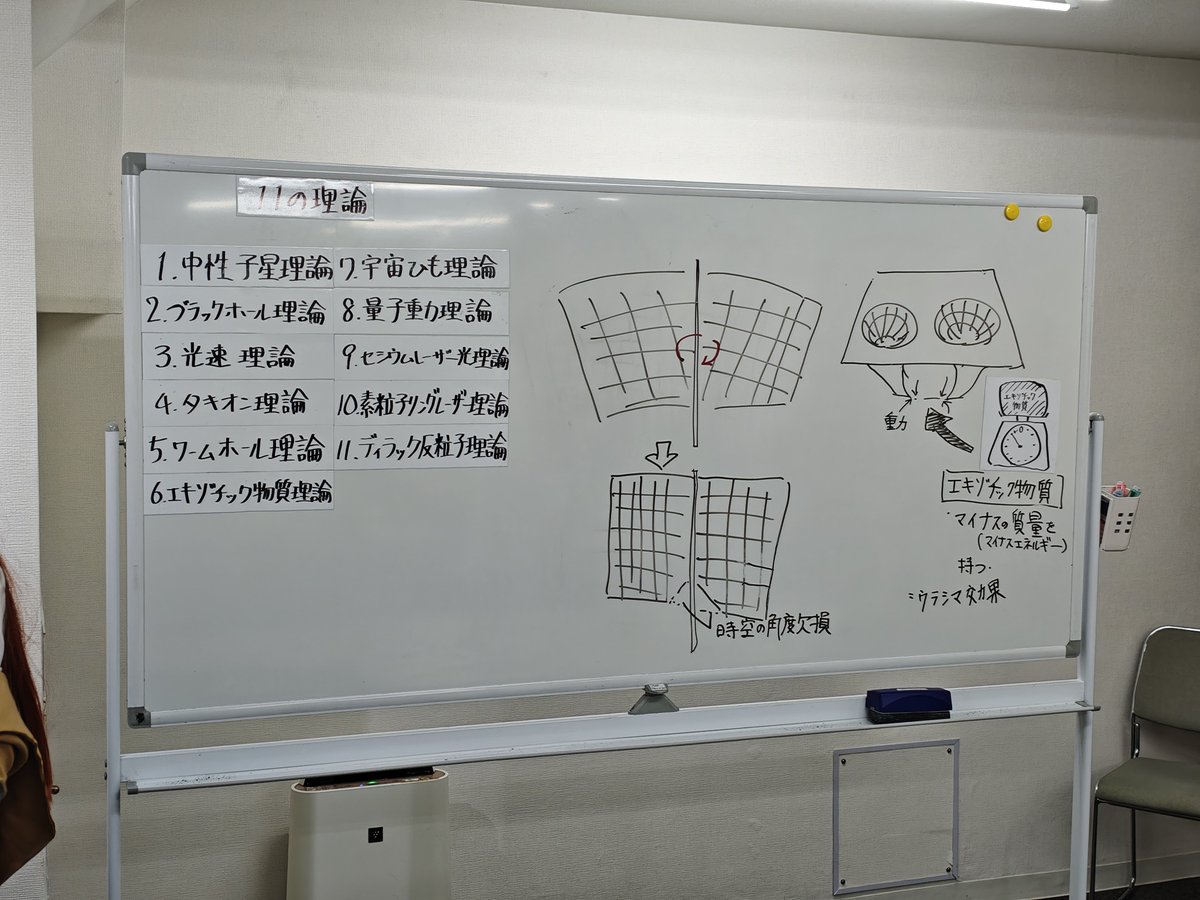 11の理論
1.中性子星理論
2.ブラックホール理論
3.光速理論
4.タキオン理論
5.ワームホール理論
6.エキゾチック物質理論
7.宇宙ひも理論
8.量子重力理論
9.セシウムレーザー光理論
10.素粒子リングレーザー理論
11.ディラック反粒子理論
時空の角度欠損
重力
エキゾチック
物質
0
エキゾチック物質
・マイナスの質量を
(マイナスエネルギー)
持つ.
ウラシマ効果